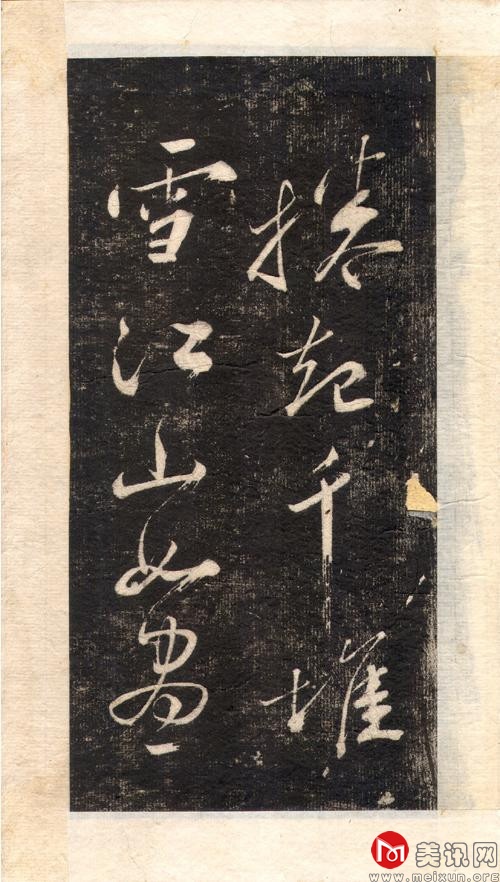 捲起千堆
雪江山如畫
美讯网
www.meixun.org